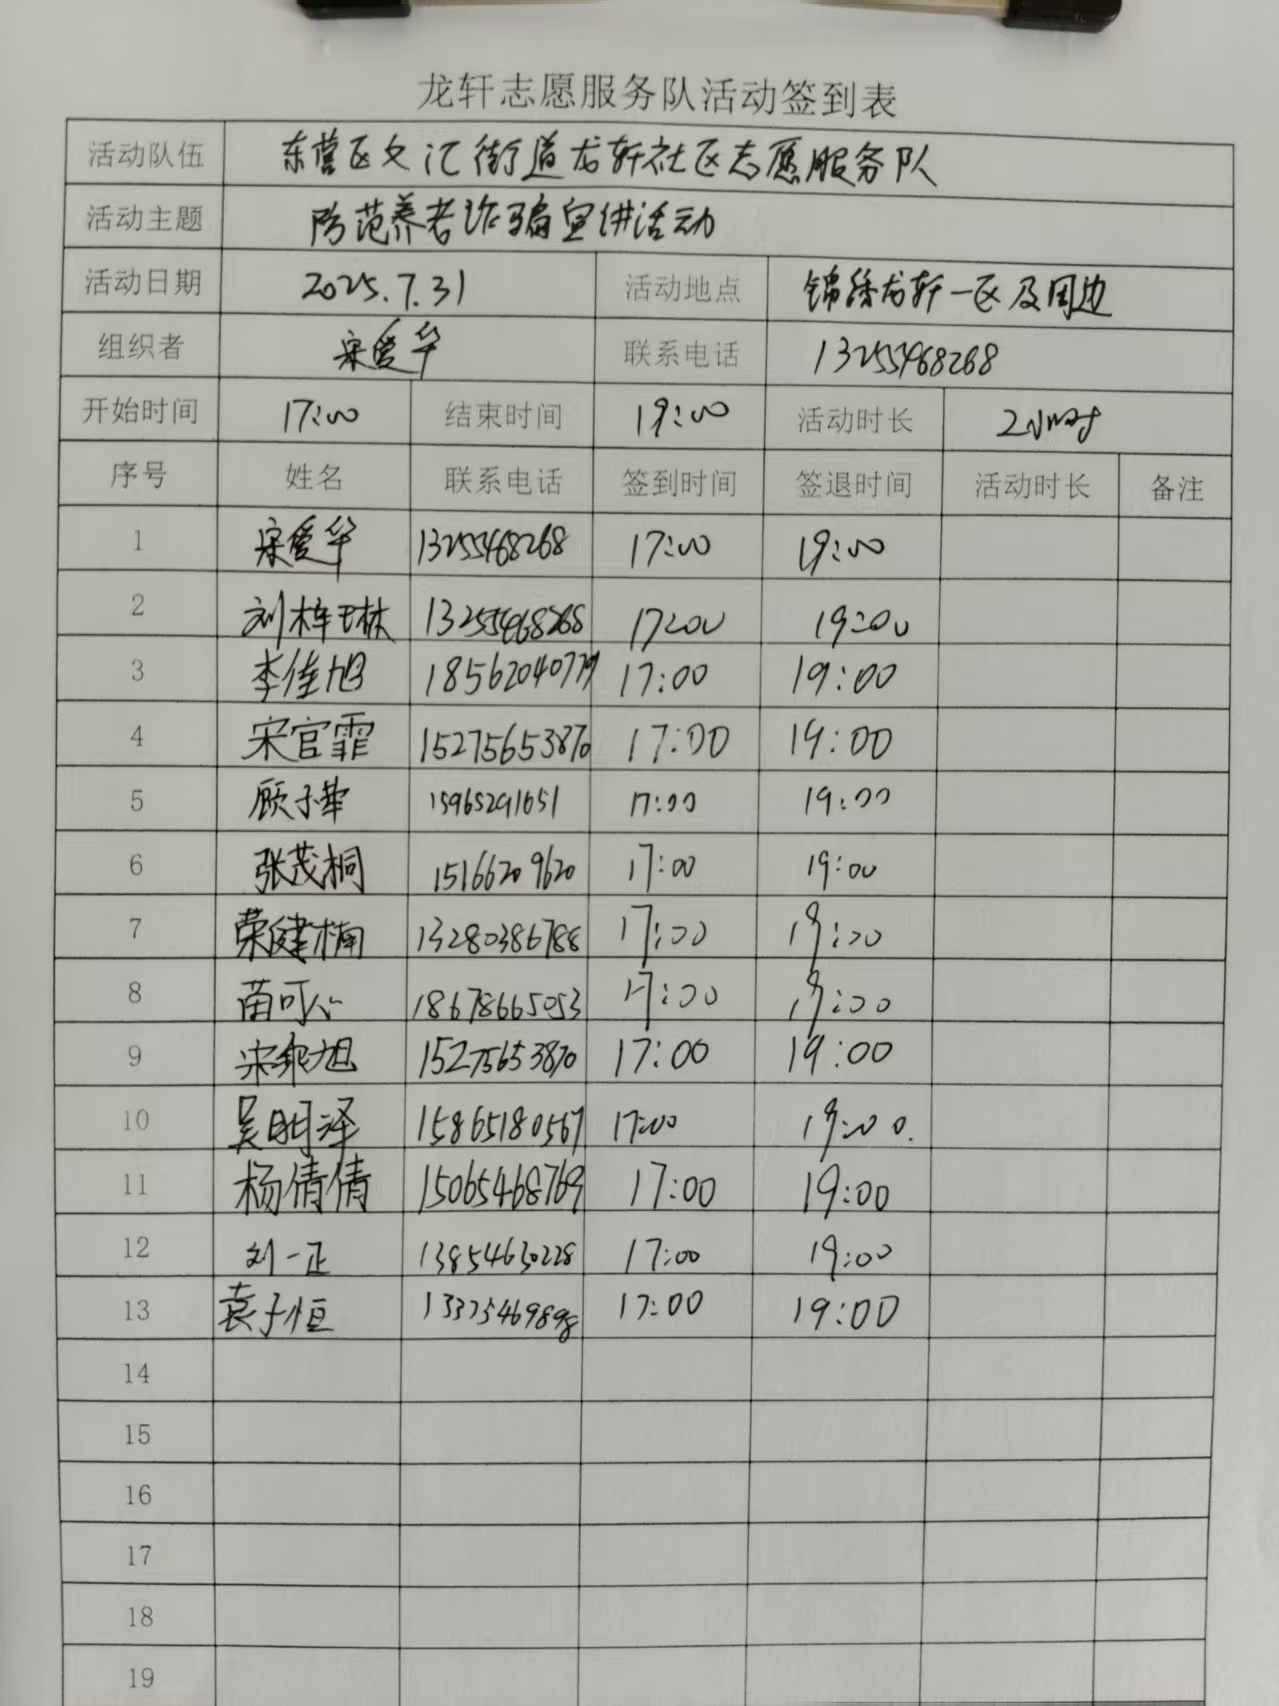 龙轩志愿服务队活动签到表
活动队伍 东营区文汇街道龙轩社区志愿服务队
活动主题 防范养老诈骗宣讲活动
活动日期 2025.7.31 活动地点 锦绣龙轩一区及周边
组织者 宋爱华 联系电话 13255468268
开始时间 17:00 结束时间 19:00 活动时长 2小时
序号 姓名 联系电话 签到时间 签退时间 活动时长 备注
1 宋爱华 13255468268 17:00 19:00
2 13255468268 17:00 19:00
3 李佳旭 18562040779 17:00 19:00
4 宋官霏 15275653870 17:00 19:00
5 15965291651 17:00 19:00
6 张茂桐 15166209620 17:00 19:00
7 荣健楠 13280386788 17:00 19:00
8 苗可心 18678665053 17:00 19:00
9 15275653870 17:00 19:00
10 吴明泽 15865180567 17:00 19:00.
11 杨倩倩 15065468769 17:00 19:00
12 刘一正 13854630228 17:00 19:00
13 袁子恒 13375469898 17:00 19:00
14
15
16
17
18
19